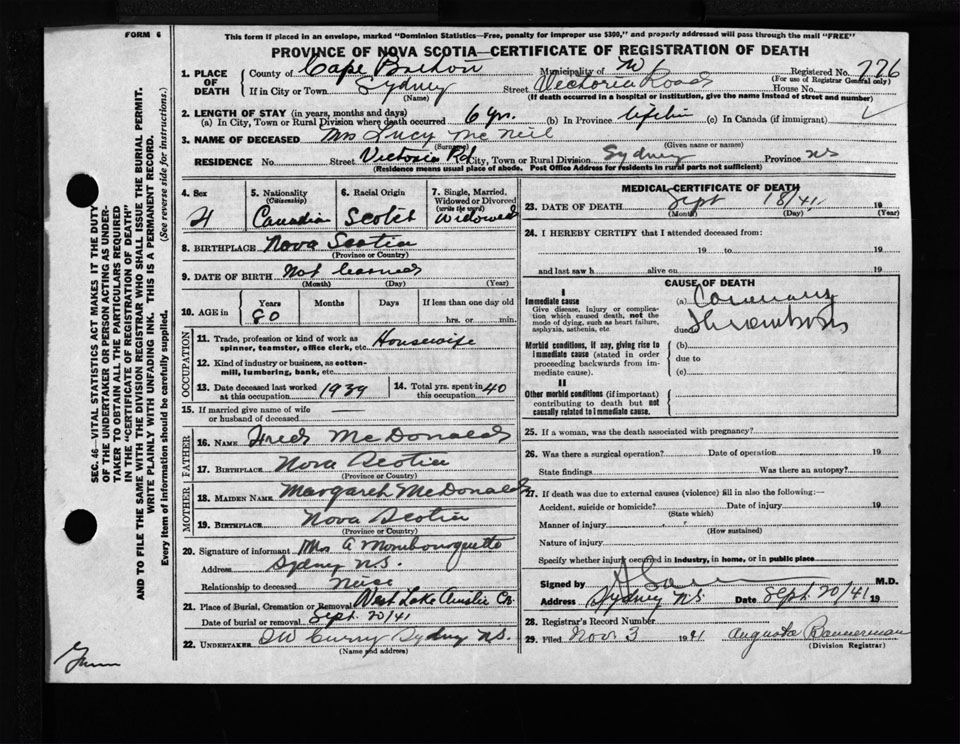 FORM 6
This form if placed in an envelope, marked "Dominion Statistics—Free, penalty for improper use $300," and properly addressed will pass through the mail "FREE"
PROVINCE OF NOVA SCOTIA—CERTIFICATE OF REGISTRATION OF DEATH
1. PLACE OF DEATH
County of Cape Breton Municipality of Registered No. 776
(For use of Registrar General only)
If in City or Town Sydney Street Victoria Road House No.
(Name) (If death occurred in a hospital or institution, give the name instead of street and number)
2. LENGTH OF STAY (in years, months and days)
(a) In City, Town or Rural Division where death occurred 6 yrs. (b) In Province lifetime (c) In Canada (if immigrant)
3. NAME OF DECEASED Mrs Lucy Mc Neil
(Surname) (Given name or names)
RESIDENCE No. Street Victoria Rd City, Town or Rural Division Sydney Province NS
(Residence means usual place of abode. Post Office Address for residents in rural parts not sufficient)
4. Sex
5. Nationality (Citizenship) Canadian
6. Racial Origin Scotch
7. Single, Married, Widowed or Divorced (write the word) Widowed
8. BIRTHPLACE Nova Scotia
(Province or Country)
9. DATE OF BIRTH Not learned
(Month) (Day) (Year)
10. AGE in Years Months Days If less than one day old
80 hrs. or min.
OCCUPATION
11. Trade, profession or kind of work as spinner, teamster, office clerk, etc. Housewife
12. Kind of industry or business, as cotton-mill, lumbering, bank, etc.
13. Date deceased last worked at this occupation 1939
14. Total yrs. spent in this occupation 40
15. If married give name of wife or husband of deceased —
FATHER
16. NAME Fred McDonald
17. BIRTHPLACE Nova Scotia
(Province or Country)
MOTHER
18. MAIDEN NAME Margaret McDonald
19. BIRTHPLACE Nova Scotia
(Province or Country)
20. Signature of informant Mrs A Mombourquette
Address Sydney N.S.
Relationship to deceased Neice
21. Place of Burial, Cremation or Removal West Lake Ainslie CB.
Date of burial or removal Sept. 20/41
22. UNDERTAKER DW Curry Sydney N.S.
(Name and address)
MEDICAL CERTIFICATE OF DEATH
23. DATE OF DEATH Sept 18/41 19
(Month) (Day) (Year)
24. I HEREBY CERTIFY that I attended deceased from:
19 to 19
and last saw h alive on 19
CAUSE OF DEATH
I
Immediate cause (a) Coronary
Give disease, injury or complication which caused death, not the mode of dying, such as heart failure, asphyxia, asthenia, etc
due to Thrombosis
Morbid conditions, if any, giving rise to immediate cause (stated in order proceeding backwards from immediate cause).
(b)
due to
(c)
II
Other morbid conditions (if important) contributing to death but not causally related to immediate cause.
25. If a woman, was the death associated with pregnancy?
26. Was there a surgical operation? Date of operation 19
State findings Was there an autopsy?
27. If death was due to external causes (violence) fill in also the following:—
Accident, suicide or homicide? Date of injury 19
(State which)
Manner of injury
(How sustained)
Nature of injury
Specify whether injury occurred in industry, in home, or in public place
Signed by M.D.
Address Sydney NS Date Sept. 20/41 19
28. Registrar's Record Number
29. Filed Nov. 3 1941 Augusta Bannerman
(Division Registrar)
SEC. 46—VITAL STATISTICS ACT MAKES IT THE DUTY
OF THE UNDERTAKER OR PERSON ACTING AS UNDER-
TAKER TO OBTAIN ALL THE PARTICULARS REQUIRED
IN THE "CERTIFICATE OF REGISTRATION OF DEATH"
AND TO FILE THE SAME WITH THE DIVISION REGISTRAR WHO SHALL ISSUE THE BURIAL PERMIT.
WRITE PLAINLY WITH UNFADING INK. THIS IS A PERMANENT RECORD.
Every item of Information should be carefully supplied. (See reverse side for instructions.)